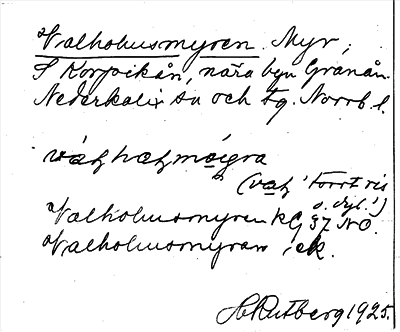 Valhohusmyren. Myr,
S Korpikån, nära byn Granån.
Nederkalix sn och tg. Norrb. l.
(vaʒ 'torrt ris
o. dyl.')
Valhohusmyren kG 37 NO.
Valhohusmyran ek.
H Rutberg 1925.